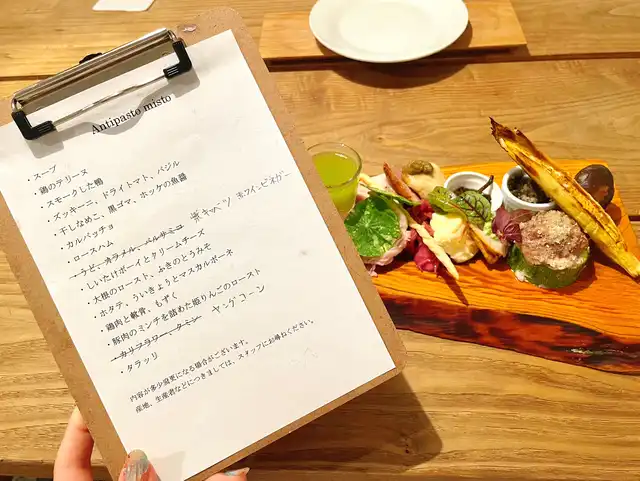 Antipasto misto
・スープ
・鶏のテリーヌ
・スモークした鴨
・ズッキーニ、ドライトマト、バジル
・干しなめこ、黒ゴマ、ホッケの魚醤
・カルパッチョ
・ロースハム
・うど、カラメル、バルサミコ 紫キャベツ 赤ワインビネガー
・しいたけポーイとクリームチーズ
・大根のロースト、ふきのとうみそ
・ホタテ、ういきょうとマスカルポーネ
・鶏肉と軟骨、もずく
・豚肉のミンチを詰めた姫りんごのロースト
・カリフラワー、クミン ヤングコーン
・タラッリ
内容が多少変更になる場合がございます。
産地、生産者などにつきましては、スタッフにお尋ねください。